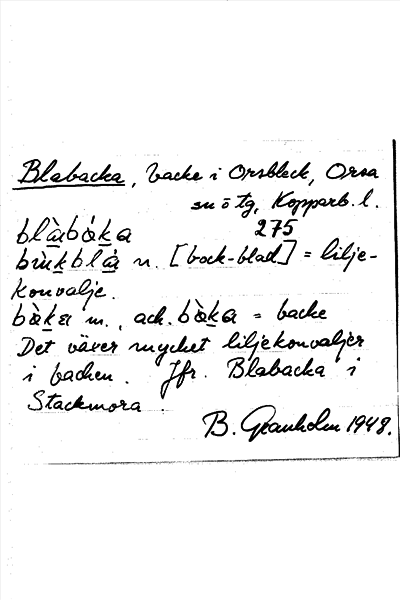 Blabacka, backe i Orsbleck, Orsa
sn ö tg, Kopparb. l.
275
blàbàka
bùkblá n. [bock-blad] = lilje-
konvalje.
bàka m., ack. bàka = backe
Det växer mycket liljekonvaljer
i backen. Jfr. Blabacka i
Stackmora.
B. Granholm 1948.